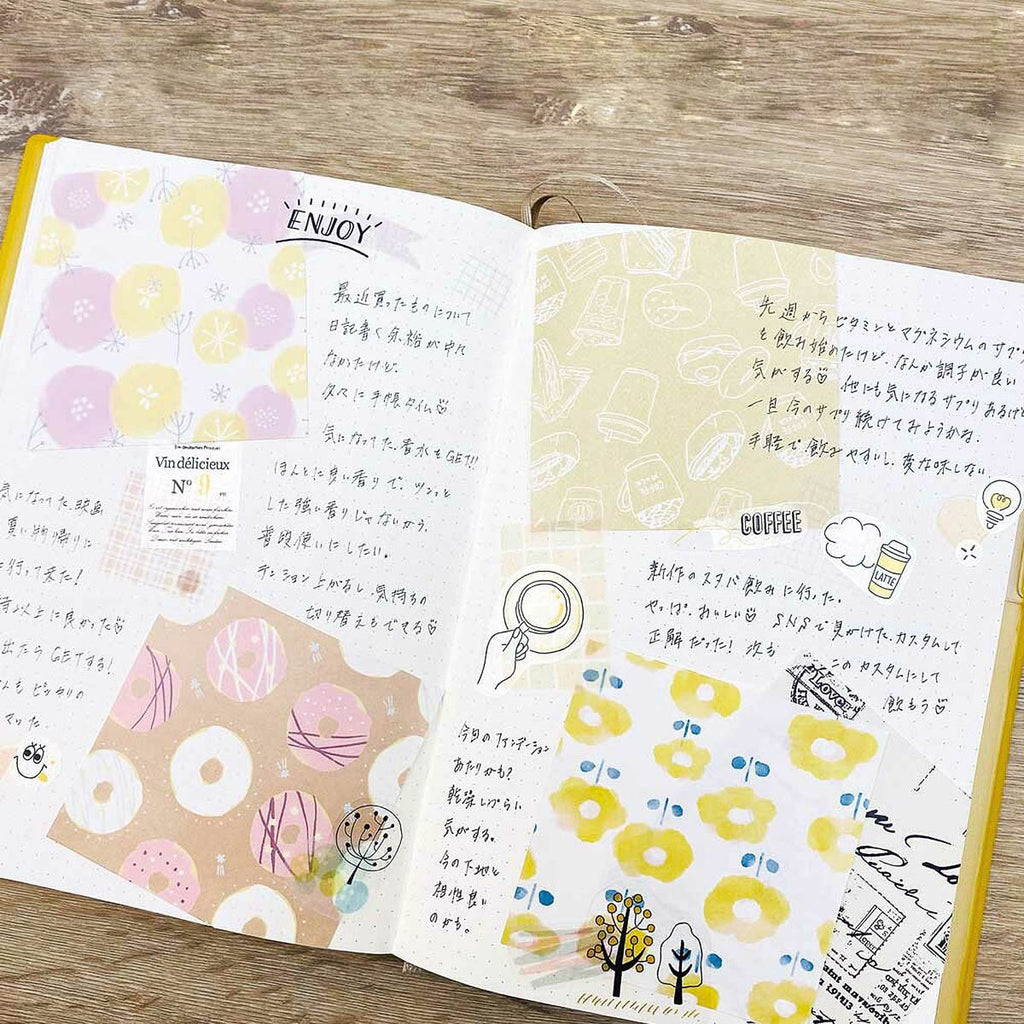 ENJOY
最近買ったものについて
日記書く余裕が中々
なかったけど、
久々に手帳タイム♡
気になってた、香水もGET!!
ほんとに良い香りで、ツンっと
した強い香りじゃないから、
普段使いにしたい。
テンション上がるし、気持ちの
切り替えもできる♡
Vin délicieux
Nº 9
気になってた、映画
買い物帰りに
に行って来た!
待以上に良かった♡
出たらGETする!
もピッタリの
先週からビタミンとマグネシウムのサプリ
を飲み始めたけど、なんか調子が良い
気がする♡ 他にも気になるサプリあるけど
一旦今のサプリ続けてみようかな。
手軽で飲みやすいし、変な味しない。
COFFEE
LATTE
新作のスタバ飲みに行った。
やっぱ、おいしい♡ SNSで見かけた、カスタムして
正解だった! 次も このカスタムにして
飲もう♡
Love
今回のファンデーション
あたりかも?
乾燥しづらい
気がする。
今の下地と
相性良い
のかも。